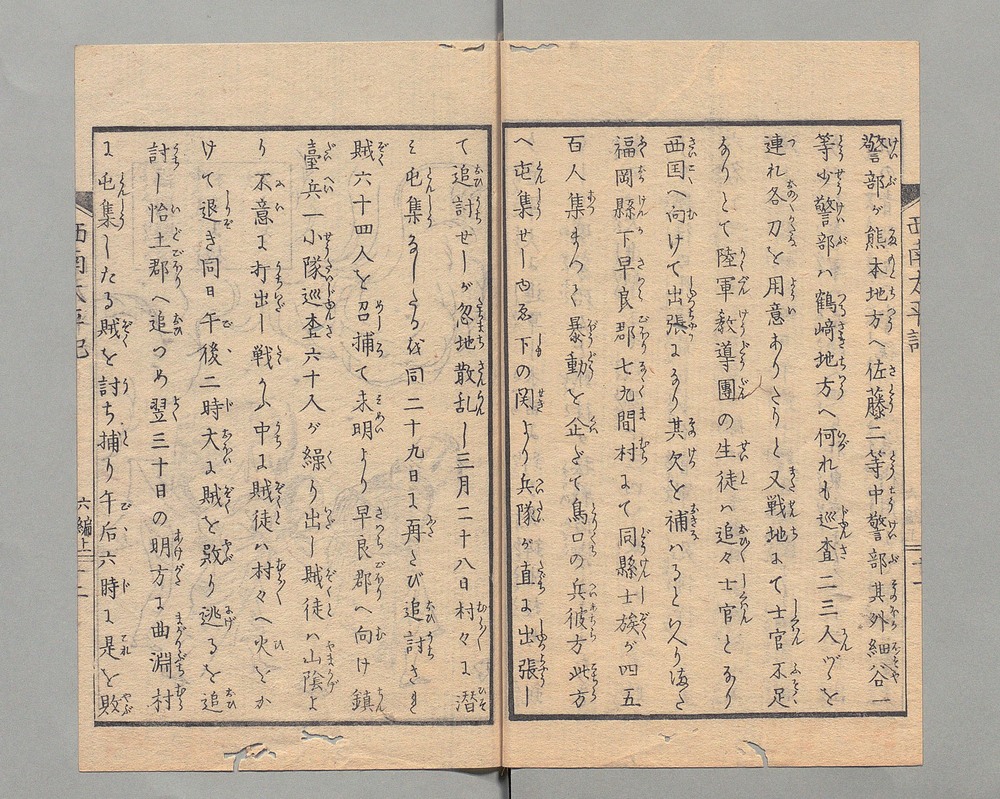 警部が熊本地方へ佐藤二等中警部其外細谷一
等少警部ハ鶴﨑地方へ何れも巡査二三人づゝを
連れ各刀を用意ありたりと又戦地にて士官不足
なりとて陸軍教導團の生徒ハ追々士官となり
西国へ向けて出張になり其欠を補ハるゝと
福岡縣下早良郡七九間村にて同縣士族が四五
百人集まつて暴動を企どて鳥口の兵彼方此方
へ屯集せしゆゑ下の関より兵隊が直に出張し
て追討せしが忽地散乱し三月二十八日村々に潜
屯集なしたる
同二十九日に再たび追討され
賊六十四人を召捕て未明より早良郡へ向け鎮
臺兵一小隊巡査六十人が繰り出し賊徒ハ山陰よ
り不意に打出し戦かふ中に賊徒ハ村々へ火をか
けて退ぞき同日午後二時大に賊を敗り逃るを追
討し怡土郡へ追つめ翌三十日の明方に曲淵村
に屯集したる賊を討ち捕り午后六時に是を敗
西南太平記
西南太平記
六編上